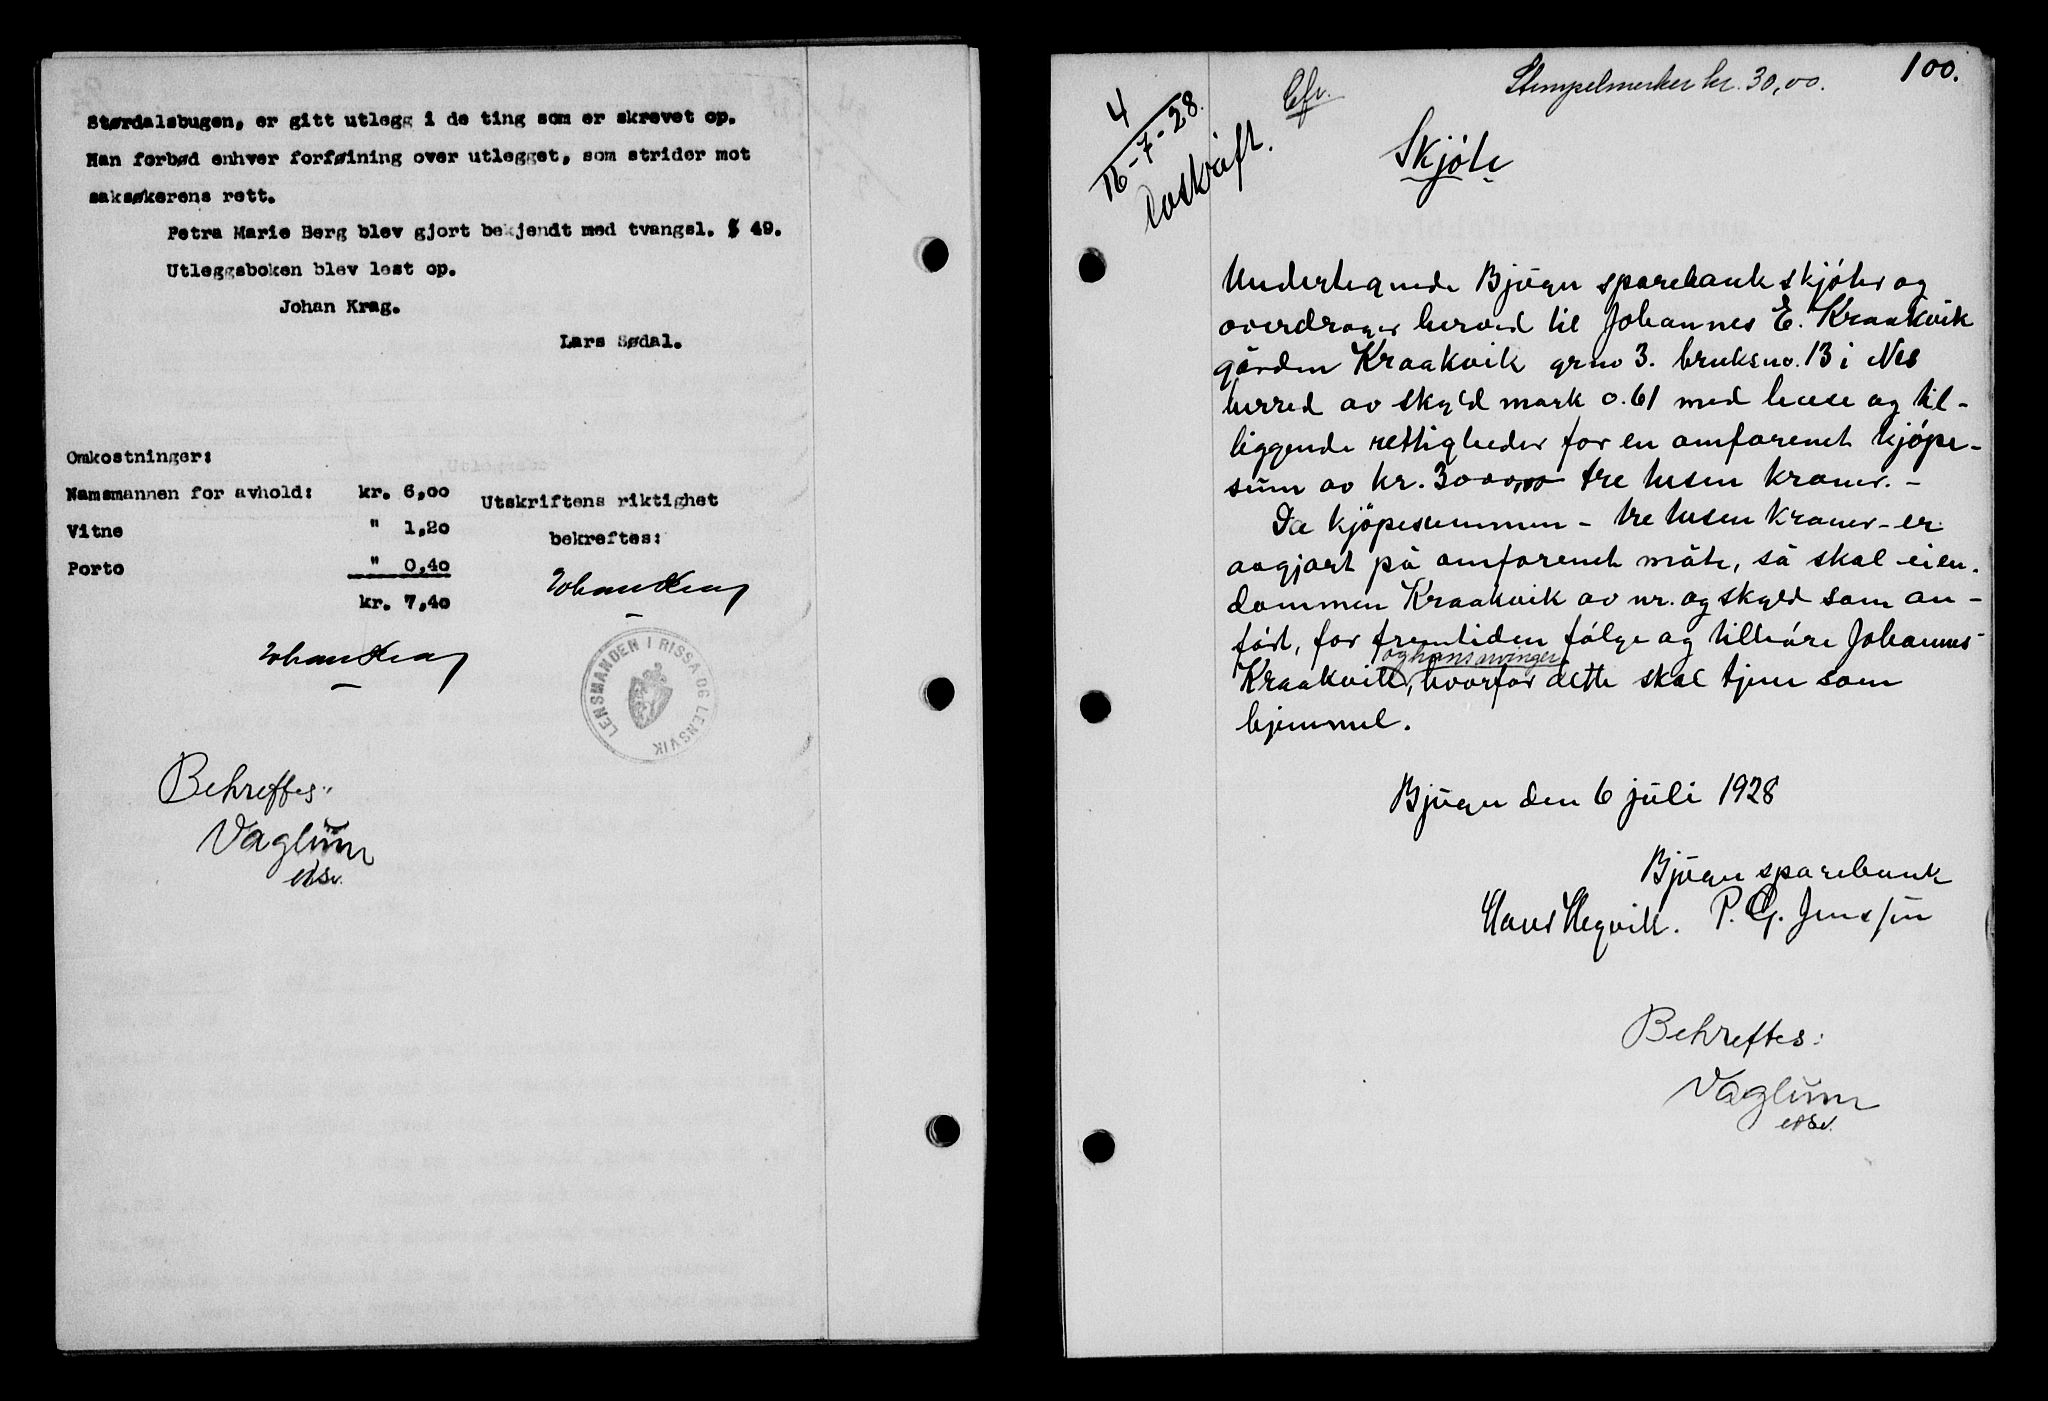 Størdalsbugen, er gitt utlegg i de ting som er skrevet op.
Man forbød enhver forføining over utlegget, som strider mot
saksøkerens rett.
Petra Marie Berg blev gjort bekjendt med tvangsl. § 49.
Utleggsboken blev lest op.
Johan Krag.
Lars Sødal.
Omkostninger:
Namsmannen for avhold: kr. 6,00
Vitne " 1,20
Porto " 0,40
kr. 7,40
Johan Krag
Utskriftens riktighet
bekreftes:
Johan Krag
LENSMANDEN I RISSA OG LENSVIK
Bekreftes:
Vaglum
edsv.
100.
Stempelmerker kr. 30,00.
4
16-7-28.
Avskrift.
Cfr.
Skjöte
Undertegnede Bjugn sparebank skjöter og
overdrager herved til Johannes E. Kraakvik
gården Kraakvik grno 3. bruksno. 13 i Nes
herred av skyld mark 0.61 med huse og til-
liggende rettigheder for en omforenet kjöpe-
sum av kr. 3000,00 tre tusen kroner. -
Da kjöpesummen - tre tusen kroner - er
avgjort på omforenet måte, så skal eien-
dommen Kraakvik av nr. og skyld som an-
fört, for fremtiden fölge og tilhöre Johannes
og hans arvinger
Kraakvik, hvorfor dette skal tjene som
hjemmel.
Bjugn den 6 juli 1928
Bjugn sparebank
Hans Hegvik. P. G. Jenssen
Bekreftes:
Vaglum
edsv.